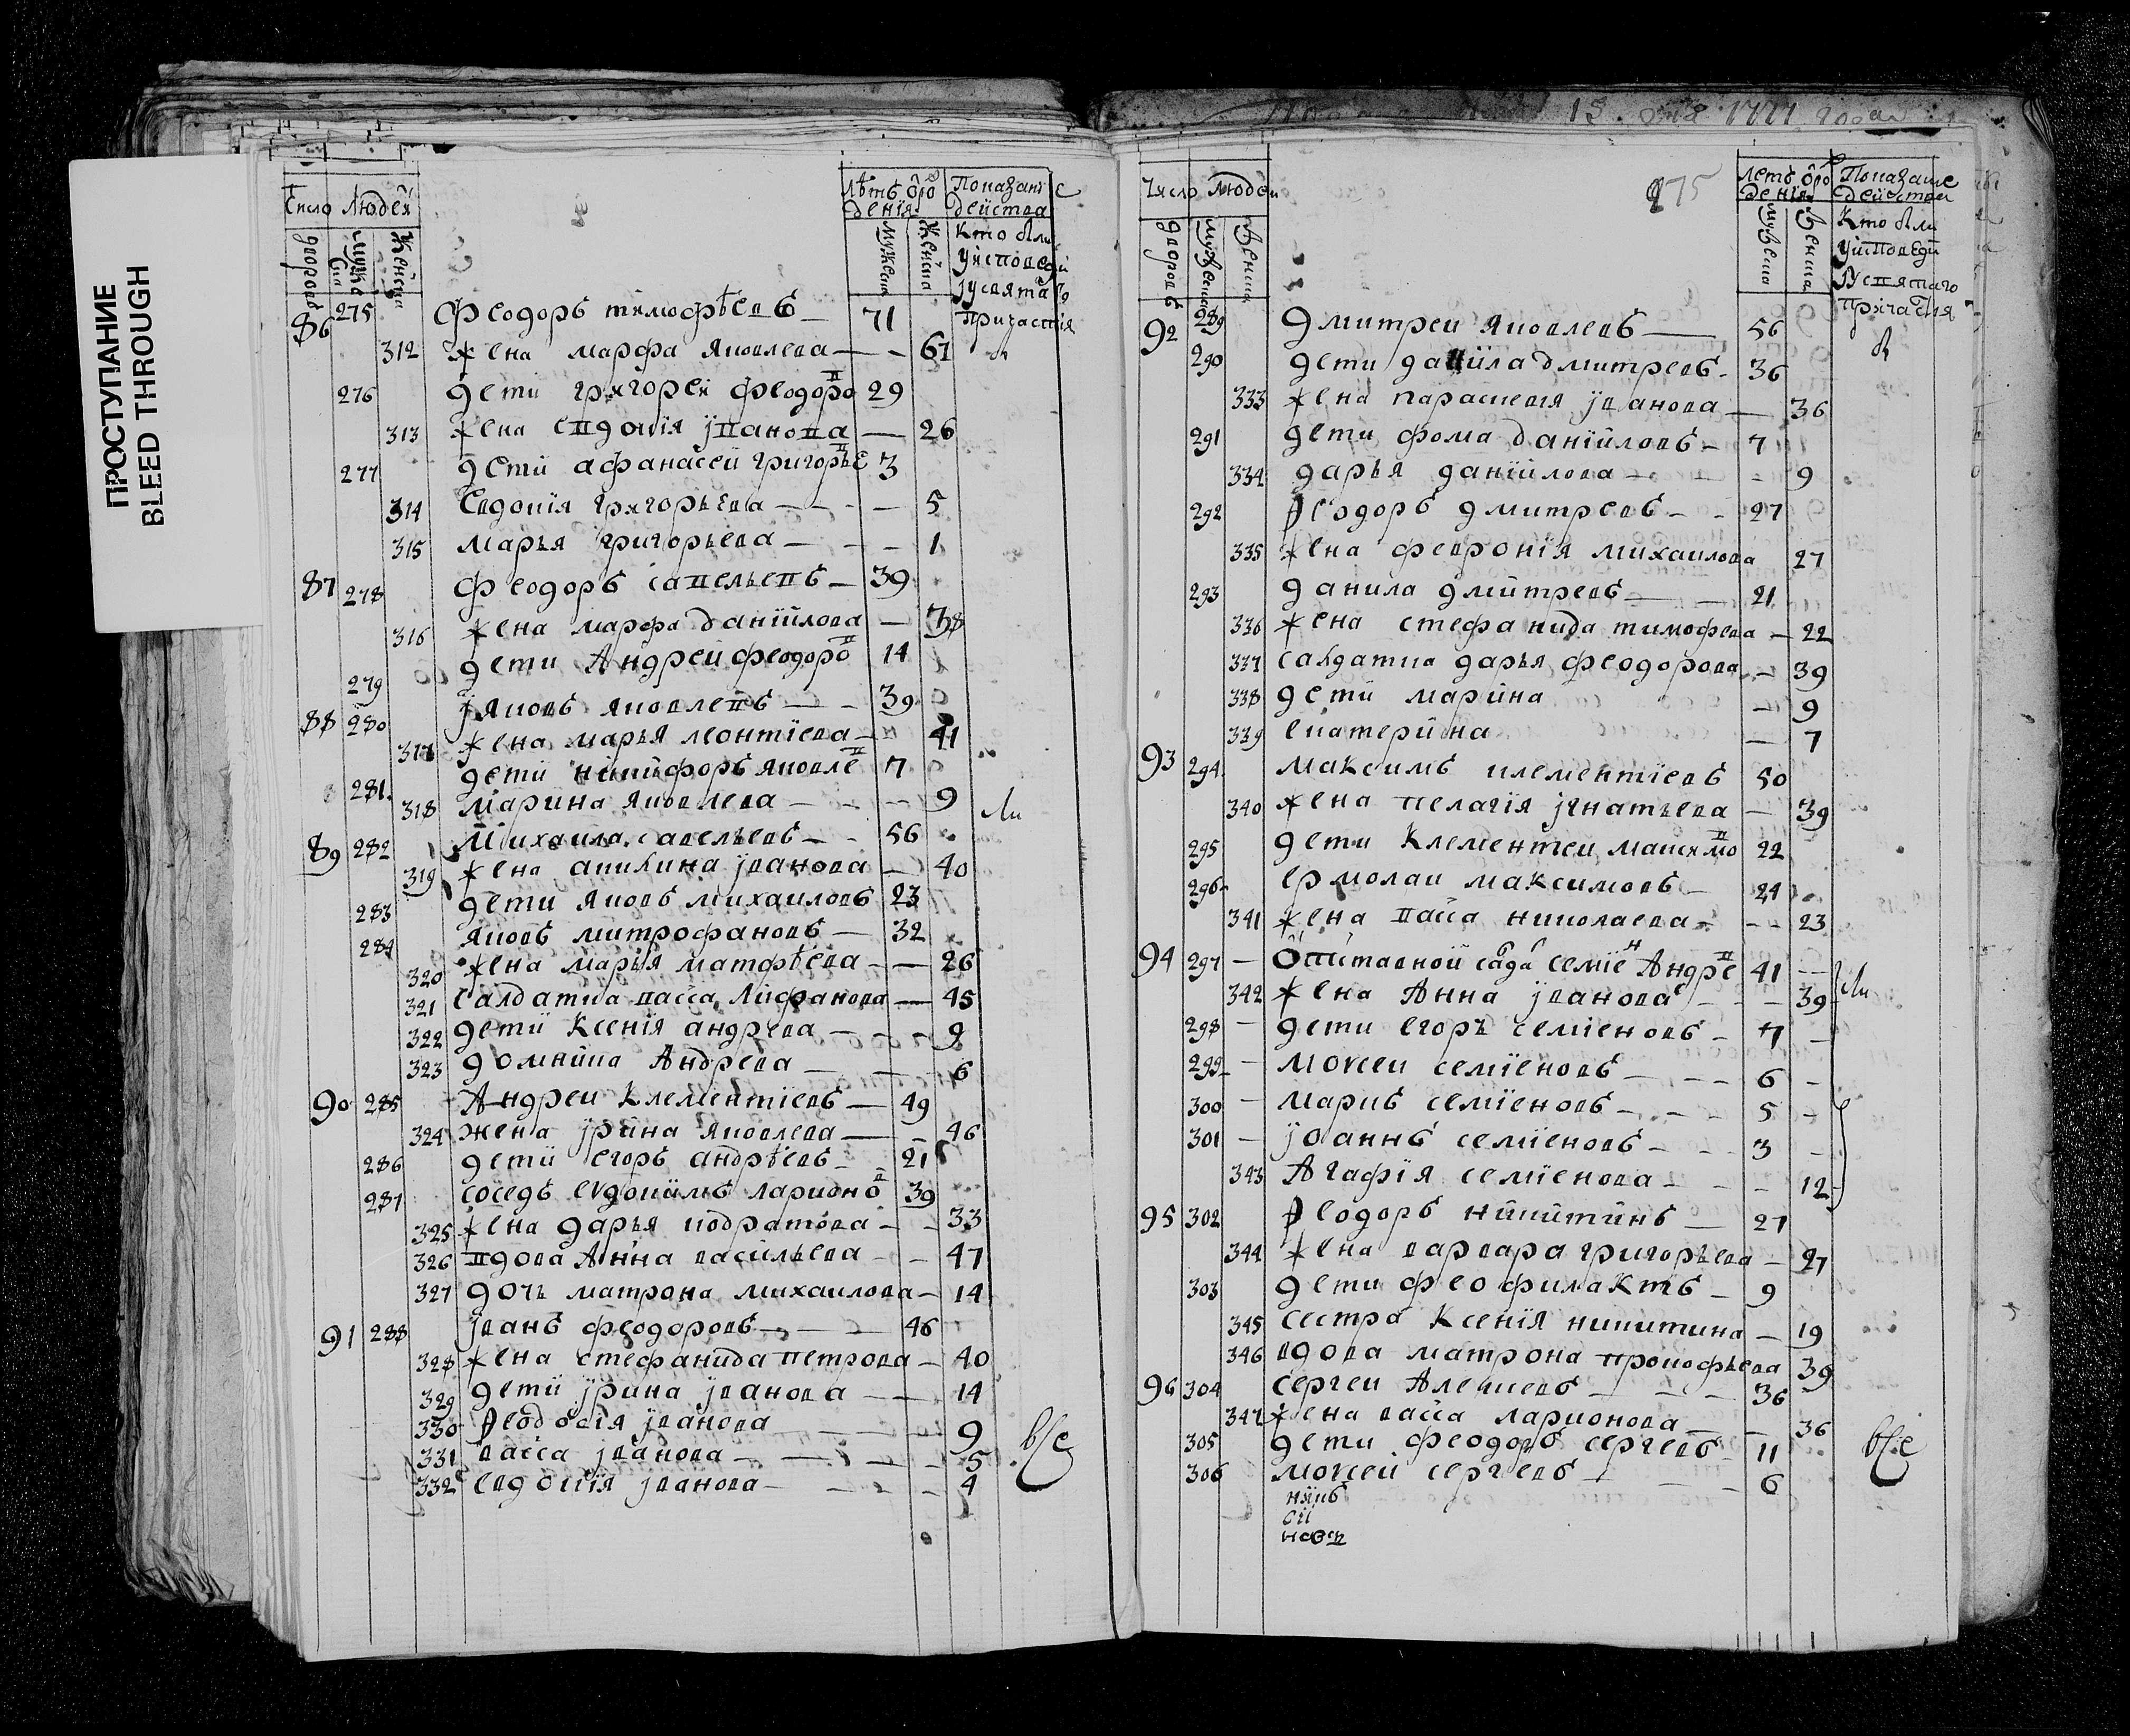 ПРОСТУПАНИЕ
BLEED THROUGH
Число людей
лѣтъ ѿро
денїя
Показанїе
действа
дворовъ
мужеска
женска
мужеска
женска
кто были
у исповеди
и у святаго
причастїя
86 275 Феодоръ тимофѣевъ 71
312 жена марфа яковлева 67
276 дети григорей феодоров 29
313 жена евдокїя іванова 26
277 дети афанасей григорьев 3
314 Евдокїя григорьева 5
315 марья григорьева 1
87 278 Феодоръ савельевъ 39
316 жена марфа данїйлова 38
279 дети Андрей феодоров 14
88 280 іяковъ яковлевъ 39
317 жена марья леонтїева 41
281 дети никифоръ яковле 7
318 марина яковлева 9
89 282 Михаила савельевъ 56
319 жена акилина іванова 40
283 дети яковъ михаиловъ 23
284 яковъ митрофановъ 32
320 жена марья матфѣева 26
321 салдатка васса 45
322 дети ксенїя андрева 9
323 домника Андрева 6
90 285 Андреи клементїевъ 49
324 жена ірина яковлева 46
286 дети егоръ андрѣевъ 21
287 соседъ евдокимъ ларионов 39
325 жена дарья кодратова 33
326 вдова Анна васильева 47
327 дочь матрона михаилова 14
91 288 іванъ феодоровъ 46
328 жена стефанида петрова 40
329 дети ірина іванова 14
330 Ѳеодосїя іванова 9
331 васса іванова 5
332 евдокїя іванова 4
все
175
Число людеи
летъ ѿро
денїя
Показание
действа
дворовъ
мужеска
женска
мужеска
женска
кто были
у исповеди
и у святаго
причастїя
92 289 Дмитреи яковлевъ 56
290 дети данїила дмитревъ 36
333 жена парасковїя іванова 36
291 дети фома данїйловъ 7
334 дарья данїйлова 9
292 Ѳеодоръ дмитревъ 27
335 жена феврониїя михаилова 27
293 данила дмитревъ 21
336 жена стефанида тимофева 22
337 салдатка дарья феодорова 39
338 дети марина 9
339 екатерина 7
93 294 максимъ клементїевъ 50
340 жена пелагїя ігнатьева 39
295 дети клементеи максимов 22
296 ермолаи максимовъ 21
341 жена васса николаева 23
94 297 Ѿставной салда семїен Андре 41
342 жена Анна іванова 39
298 дети егоръ семїеновъ 7
299 моисеи семїеновъ 6
300 маркъ семїеновъ 5
301 іоаннъ семїеновъ 3
343 Агафїя семїенова 12
95 302 Ѳеодоръ никитинъ 27
344 жена варвара григорьева 27
303 дети феофилактъ 9
345 сестра ксенїя никитина 19
346 вдова матрона прокофьева 39
96 304 сергеи Алексевъ 36
347 жена васса ларионова 36
305 дети феодоръ сергевъ 11
306 моисеи сергевъ 6
все